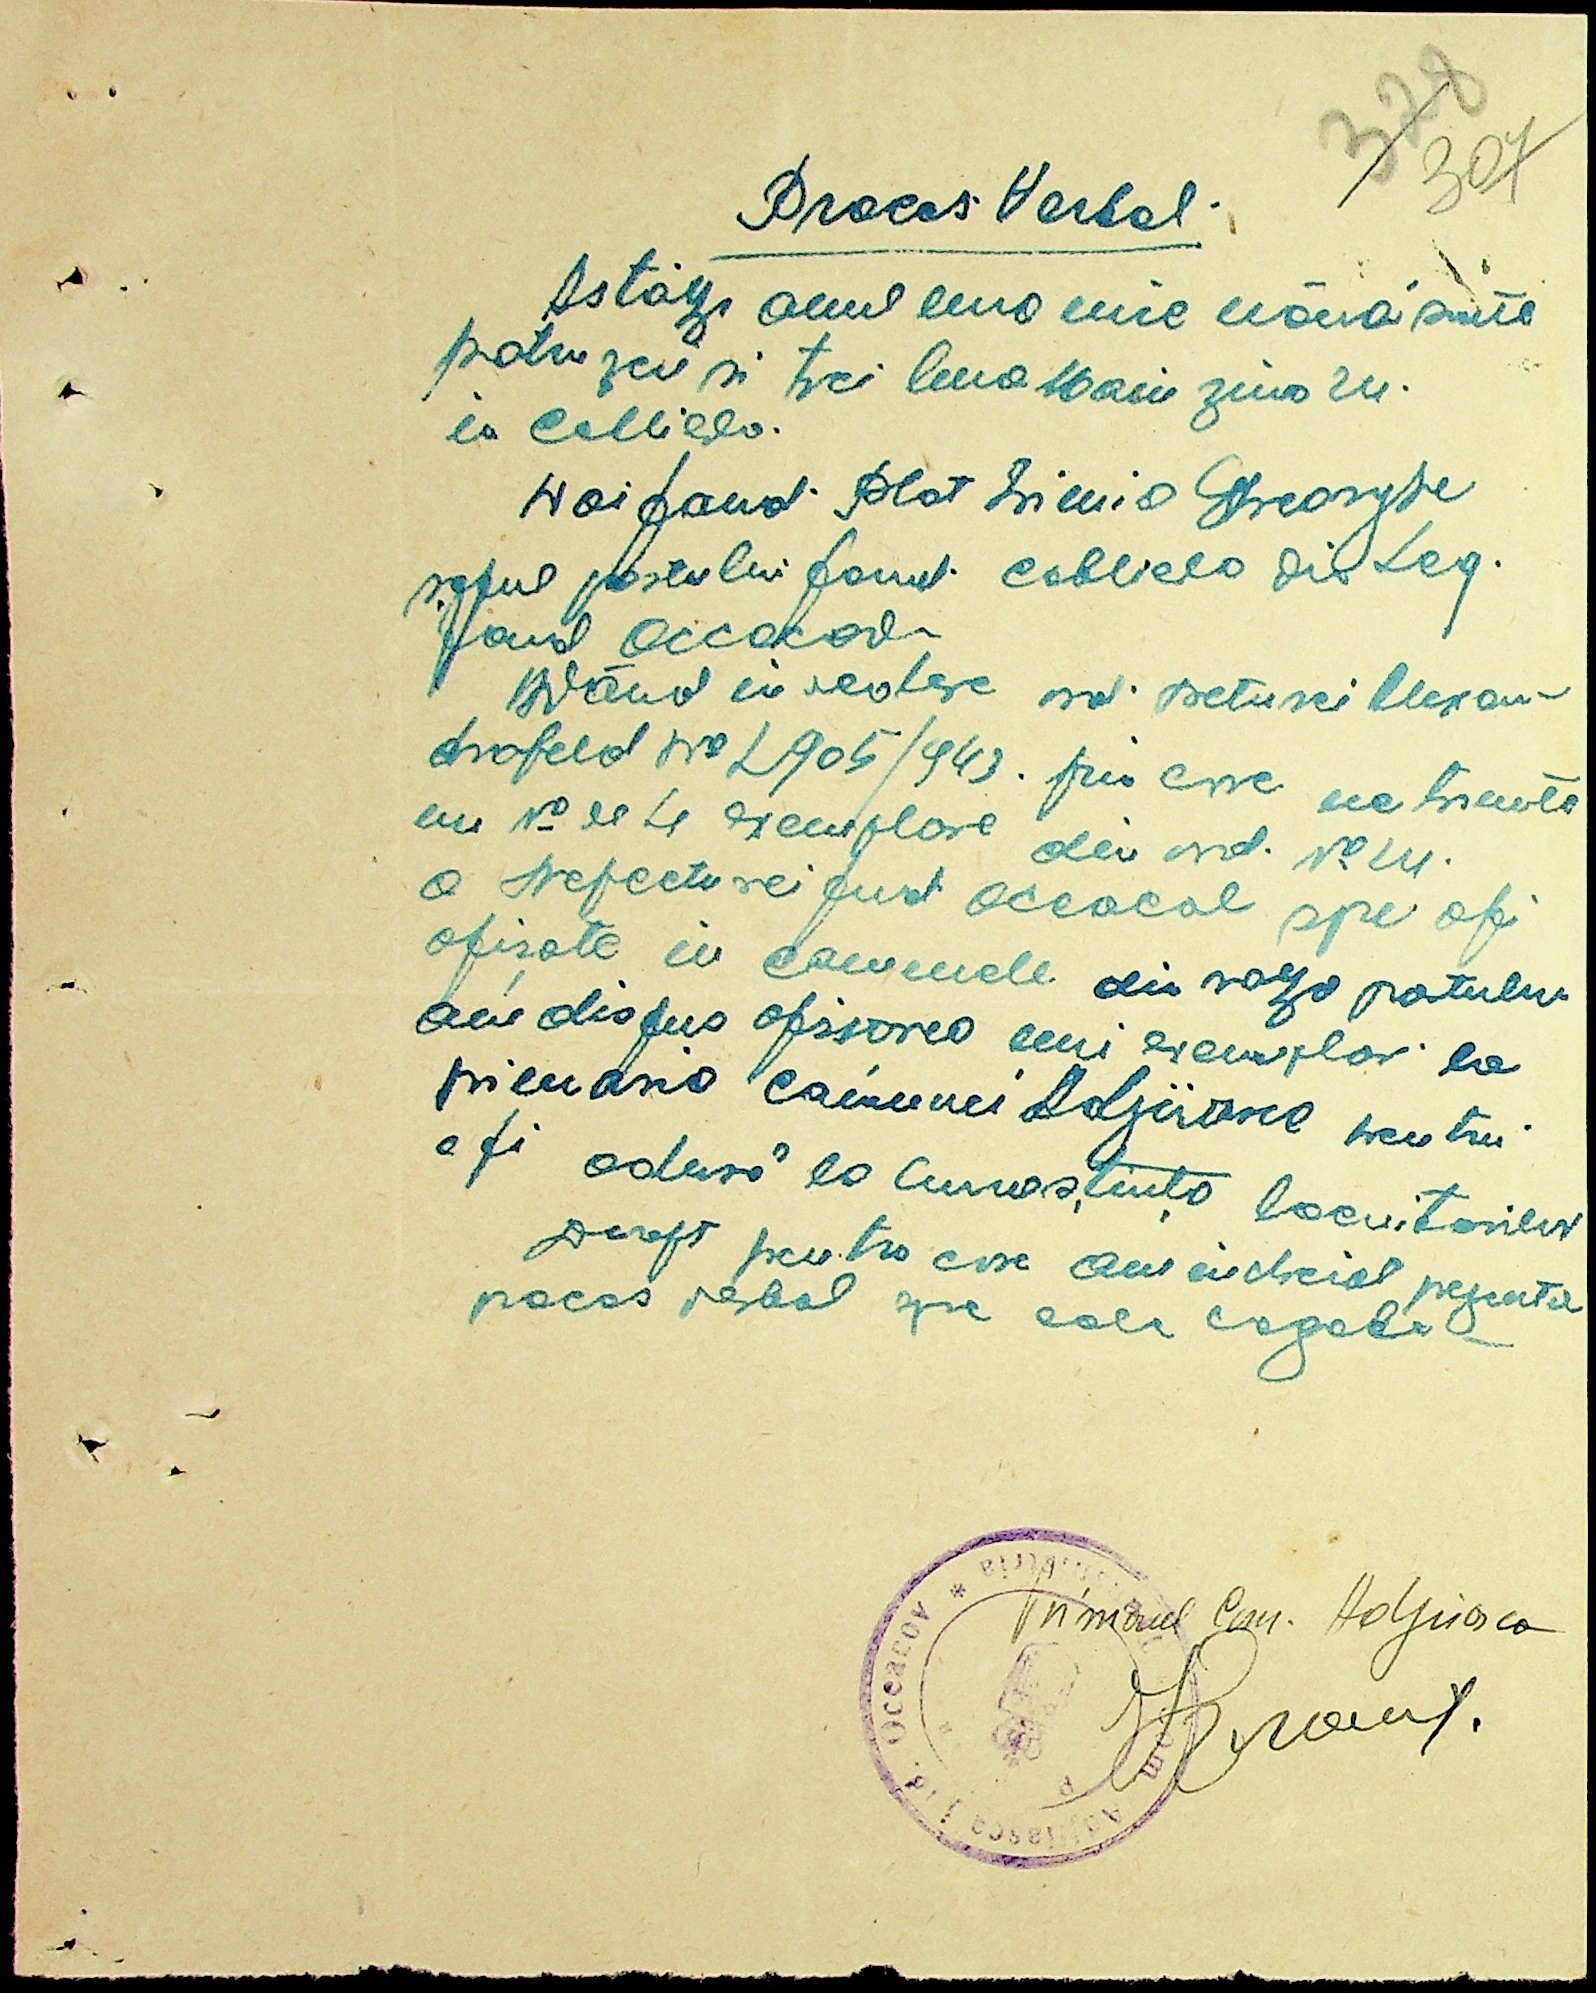 328
307
Proces Verbal.
Astăzi anul una mie nouă sute
patruzeci si trei luna Main ziua 24.
in Cabliela.
Noi Jand. Plot Gheorghe
seful postului jand. Cabliela din Leg.
Jand Oceacov
Având in vedere ord. Preturei Alexan-
drofeld No 2905/943. prin care ne trimite
un No de 4 exemplare din ord. No 24.
a Prefecturei Jud Oceacov spre a fi
afisate in comunele din raza postului
am dispus afisarea unui exemplar la
primaria comunei Adjiasca pentru
a fi adusă la cunoștința locuitorilor
Drept pentru care am incheiat prezentul
proces verbal spre cele legale
Primarul Com. Adjiasca
Oceacov * Adjiasca Jud.